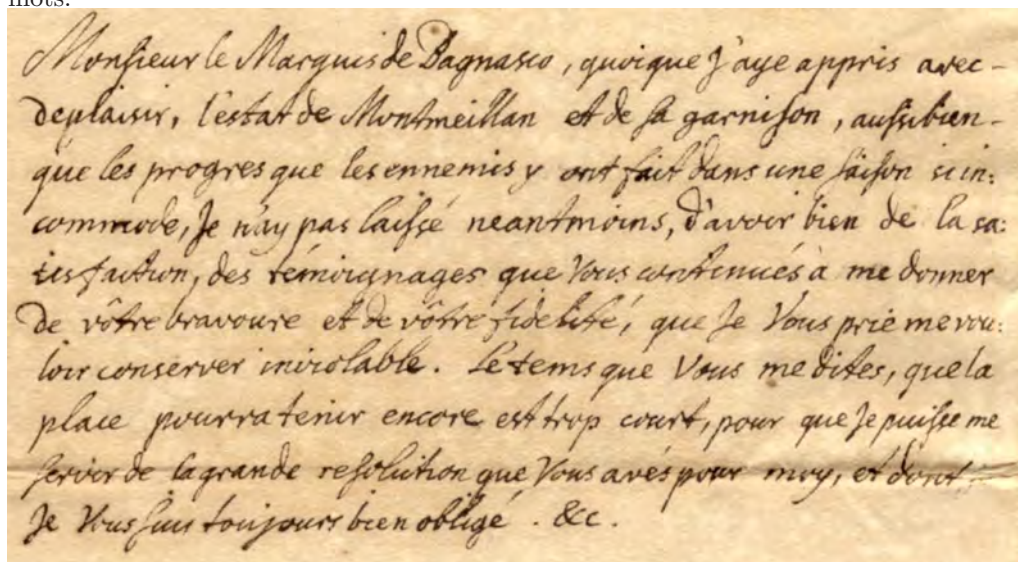 mots.
Monsieur le Marquis de Bagnasco, quoique J'aye appris avec -
deplaisir, l'estat de Montmeillan et de sa garnison, aussibien -
que les progres que les ennemis y ont fait dans une saison si in:
commode, Je n'ay pas laissé neantmoins, d'avoir bien de la sa:
tisfaction, des témoignages que Vous continués à me donner
de vôtre bravoure et de vôtre fidelité, que Je Vous prie me vou:
loir conserver inviolable. Le tems que Vous me dites, que la
place pourra tenir encore est trop court, pour que Je puisse me
servir de la grande resolution que Vous avés pour moy, et dont -
Je Vous suis toujours bien obligé. &c.